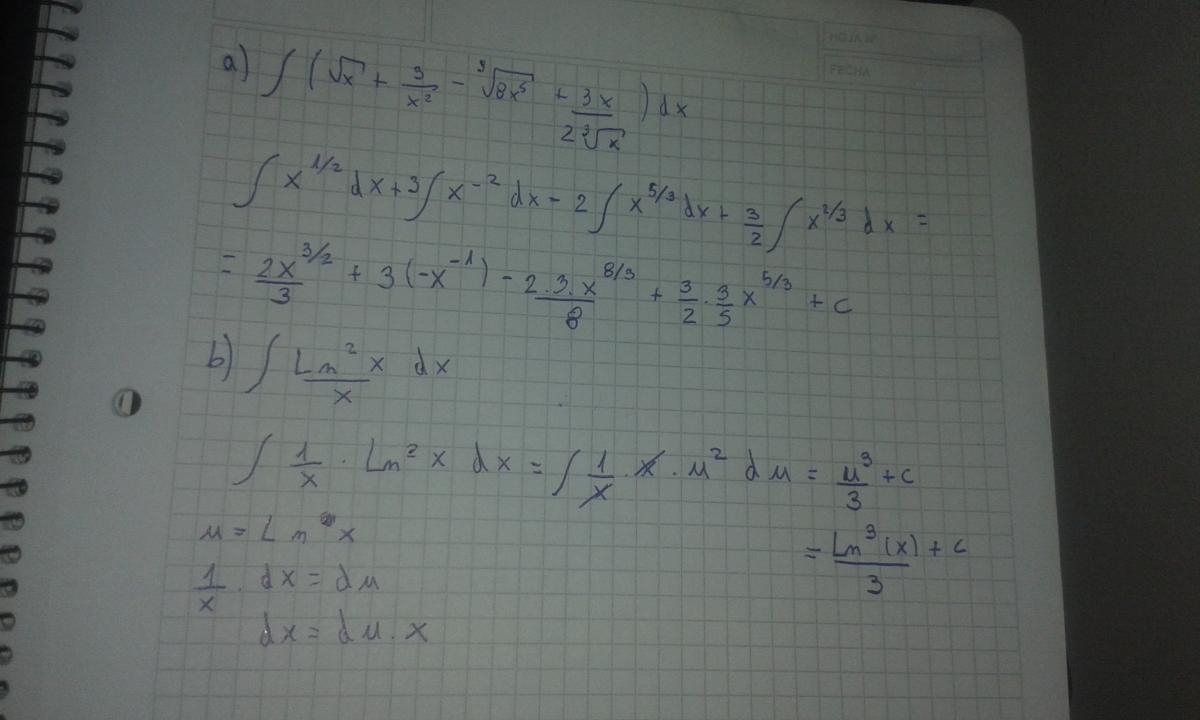 HOJA Nº
FECHA
a) ∫ (√x + 3/x² - ³√(8x⁵) + 3x/(2 ³√x)) dx
∫ x^(1/2) dx + 3∫ x^(-2) dx - 2∫ x^(5/3) dx + 3/2 ∫ x^(2/3) dx =
= 2x^(3/2)/3 + 3(-x^(-1)) - 2.3.x^(8/3)/8 + 3/2 · 3/5 x^(5/3) + c
b) ∫ Ln²x/x dx
∫ 1/x · Ln²x dx = ∫ 1/x · x · u² du = u³/3 + c
u = Ln x
= Ln³(x)/3 + c
1/x · dx = du
dx = du . x